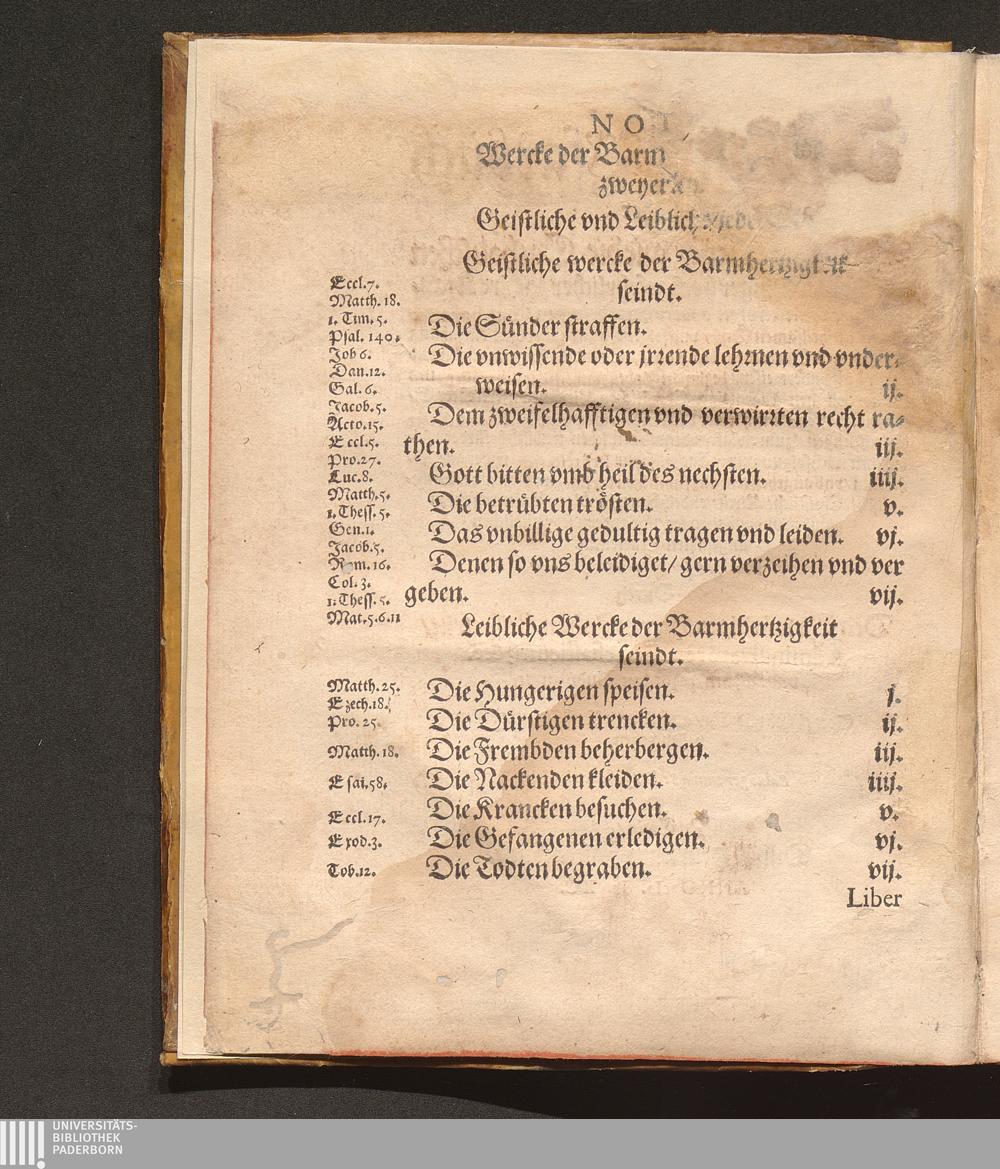 NOT
Wercke der Barm
zweyer
Geistliche vnd Leiblich
Geistliche wercke der Barmhertzigkeit
seindt.
Eccl. 7.
Matth. 18.
1. Tim. 5.
Psal. 140.
Job 6.
Dan. 12.
Gal. 6.
Jacob. 5.
Acto. 15.
Eccl. 5.
Pro. 27.
Luc. 8.
Matth. 5.
1. Thess. 5.
Gen. 1.
Jacob. 5.
Rom. 16.
Col. 3.
1. Thess. 5.
Mat. 5. 6. 11
Die Sünder straffen.
Die vnwissende oder jrrende lehrnen vnd vnder-
weisen. ij.
Dem zweifelhafftigen vnd verwirrten recht ra-
then. iij.
Gott bitten vmb heil des nechsten. iiij.
Die betrübten trösten. v.
Das vnbillige gedultig tragen vnd leiden. vj.
Denen so vns beleidiget/ gern verzeihen vnd ver
geben. vij.
Leibliche Wercke der Barmhertzigkeit
seindt.
Matth. 25.
Ezech. 18.
Pro. 25.
Matth. 18.
Esai. 58.
Eccl. 17.
Exod. 3.
Tob. 12.
Die Hungerigen speisen. j.
Die Dürstigen trencken. ij.
Die Frembden beherbergen. iij.
Die Nackenden kleiden. iiij.
Die Krancken besuchen. v.
Die Gefangenen erledigen. vj.
Die Todten begraben. vij.
Liber
UNIVERSITÄTS-
BIBLIOTHEK
PADERBORN